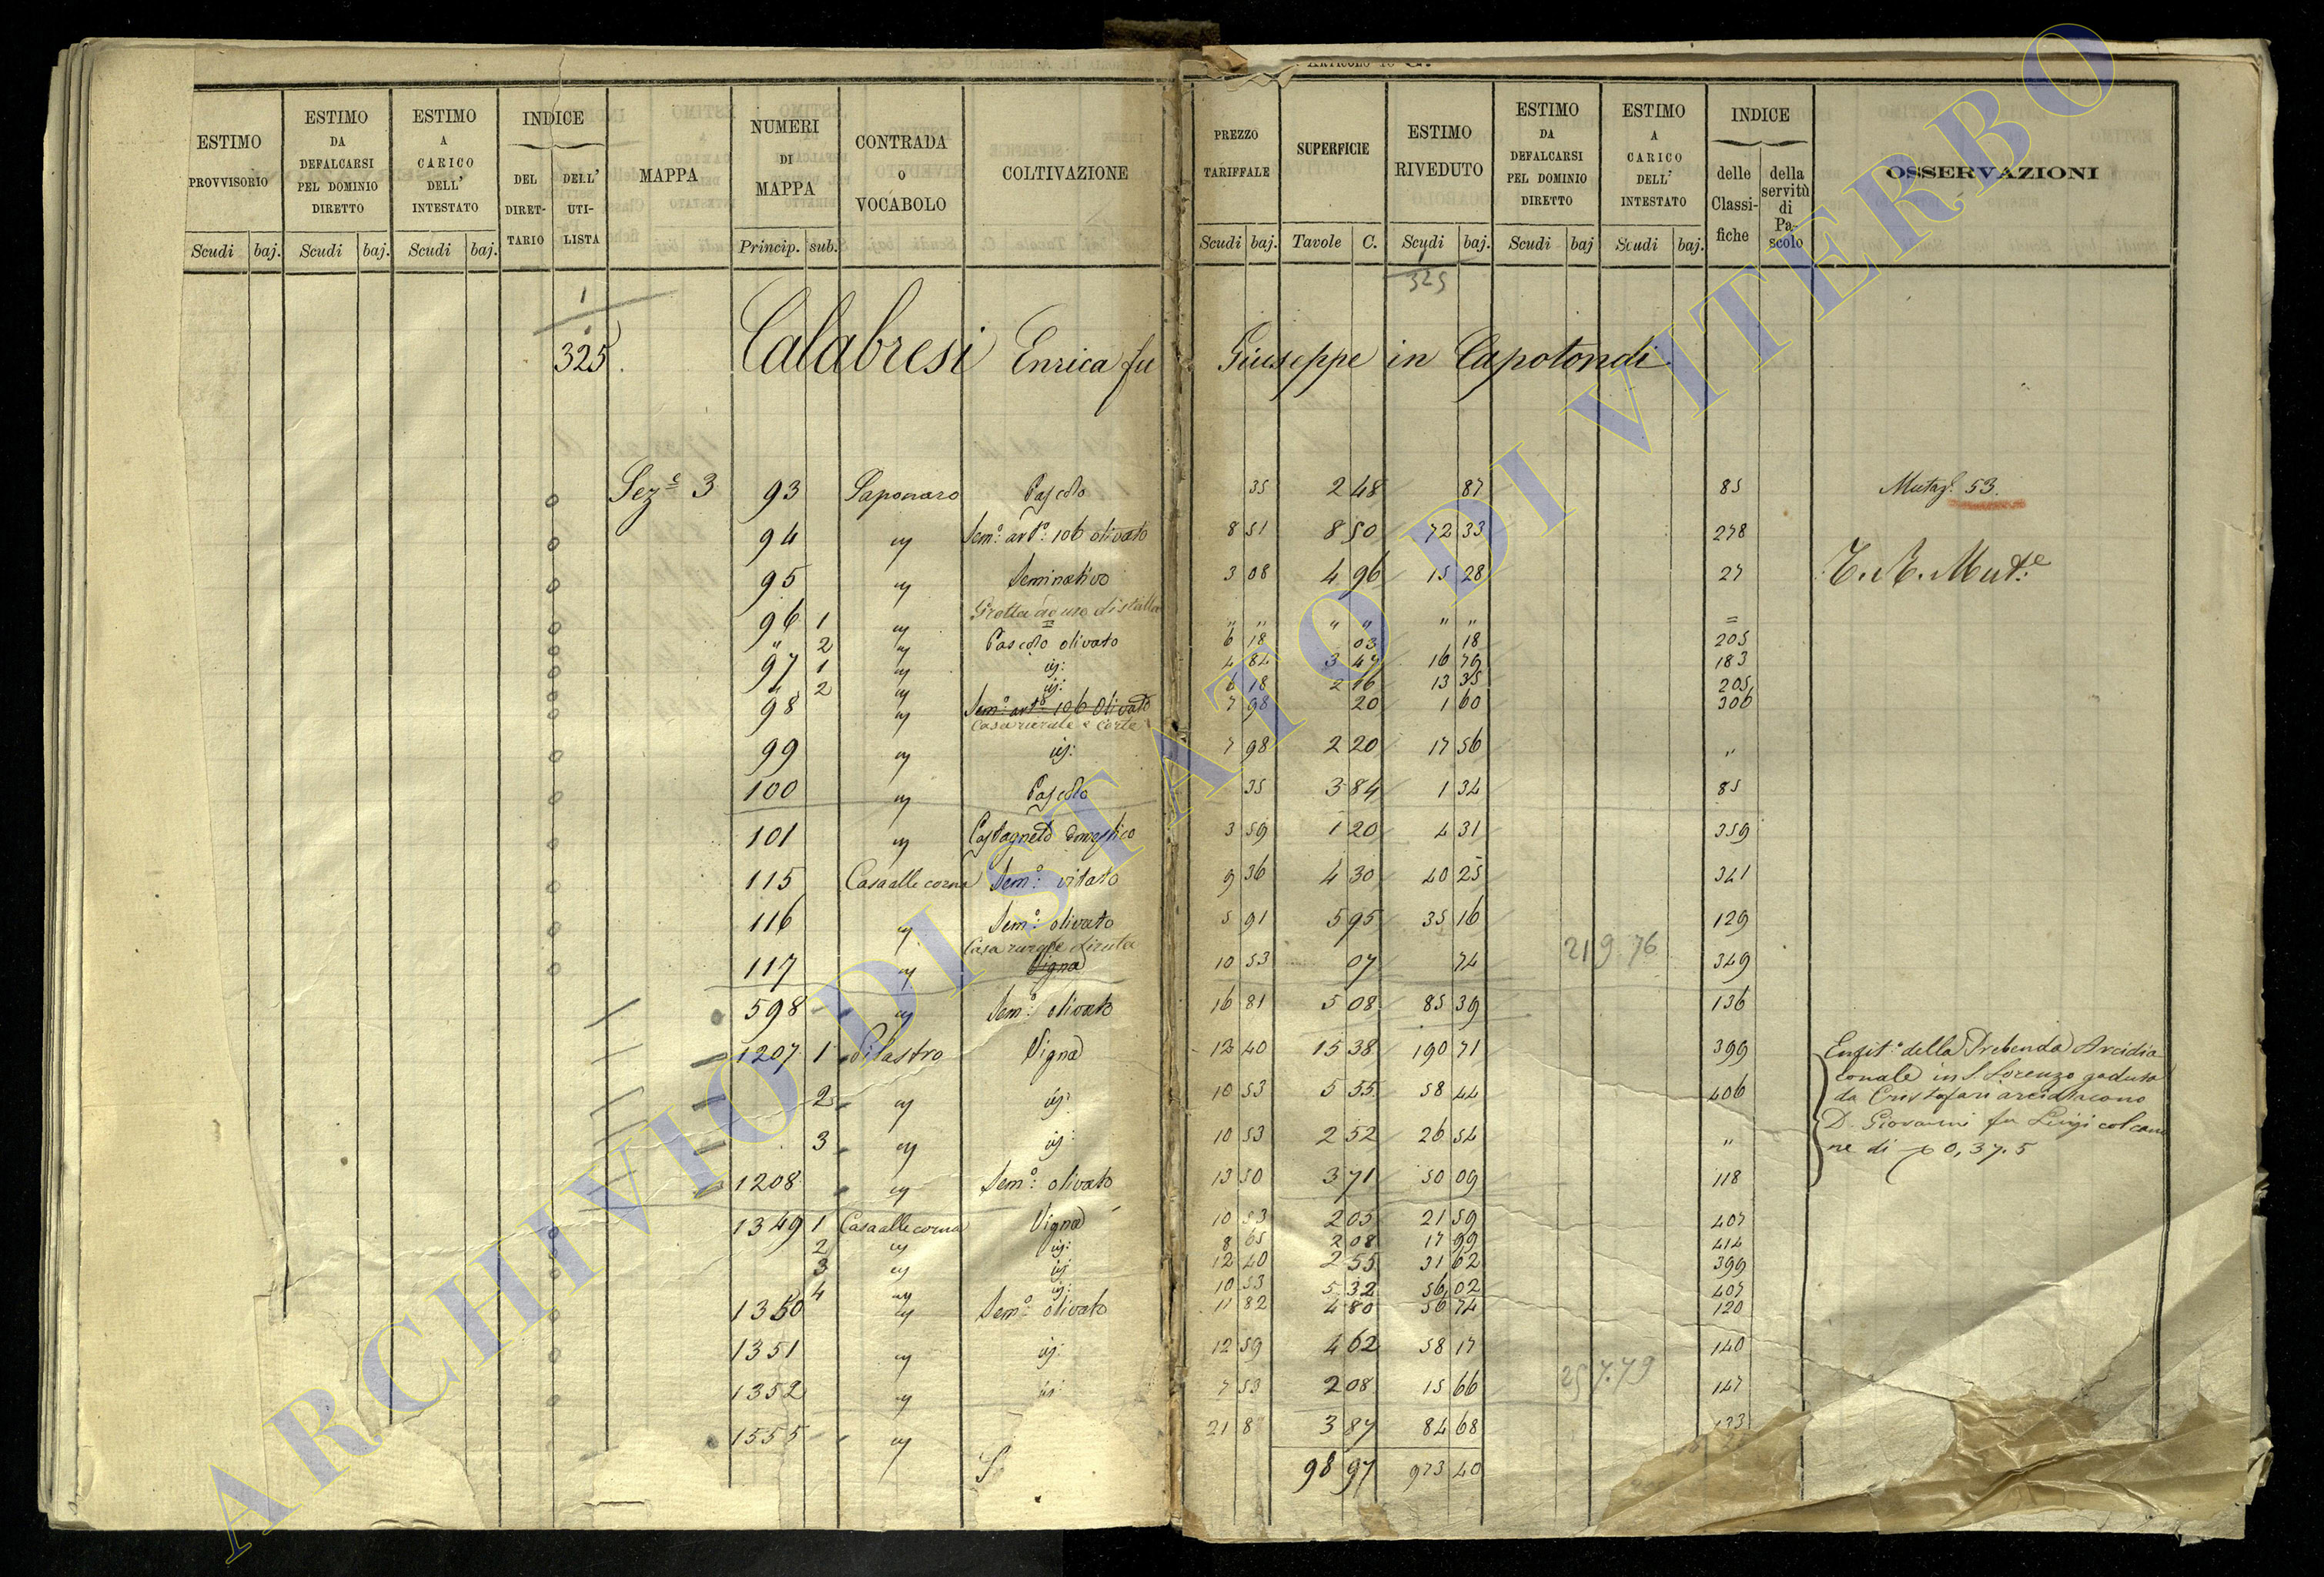 ESTIMO PROVVISORIO Scudi baj.
ESTIMO DA DEFALCARSI PEL DOMINIO DIRETTO Scudi baj.
ESTIMO A CARICO DELL' INTESTATO Scudi baj.
INDICE DEL DIRET-TARIO DELL' UTI-LISTA
MAPPA
NUMERI DI MAPPA Princip. sub.
CONTRADA O VOCABOLO
COLTIVAZIONE
PREZZO TARIFFALE Scudi baj.
SUPERFICIE Tavole C.
ESTIMO RIVEDUTO Scudi baj.
ESTIMO DA DEFALCARSI PEL DOMINIO DIRETTO Scudi baj
ESTIMO A CARICO DELL' INTESTATO Scudi baj.
INDICE delle Classi-fiche della servitù di Pa-scolo
OSSERVAZIONI
1
325
325. Calabresi Enrica fu Giuseppe in Capotondi
Sez.e 3 93 Saponaro Pascolo 35 2 48 87 85 Mutaz. 53.
94 Sem.o art.o 106 olivato 8 51 8 50 72 33 278
95 Seminativo 3 08 4 96 15 28 27 T. R. Mut.e
96 1 Grotta ad uso di stalla " " " " " " =
" 2 Pascolo olivato 6 18 03 18 205
97 1 id: 4 84 3 47 16 79 183
" 2 id: 6 18 2 16 13 35 205
98 Sem.o art.o 106 Olivato 7 98 20 1 60 306
Casa rurale e Corte
99 id: 7 98 2 20 17 56 "
100 Pascolo 35 3 84 1 34 85
101 Castagneto domestico 3 59 1 20 4 31 359
115 Casa alle corna Sem.o vitato 9 36 4 30 40 25 341
116 Sem.o olivato 5 91 5 95 35 16 129
Casa rurale diruta
117 Vigna 10 53 07 74 219.76 349
598 Sem.o olivato 16 81 5 08 85 39 136
1207 1 Pilastro Vigna 12 40 15 38 190 71 399
2 id: 10 53 5 55 58 44 406
3 id: 10 53 2 52 26 54 "
1208 Sem.o olivato 13 50 3 71 50 09 118
Enfit.a della Prebenda Arcidia
conale in S. Lorenzo goduta
da Cristofari arcidiacono
D. Giovanni fu Luigi col cano
ne di 0,37.5
1349 1 Casa alle corna Vigna 10 53 2 05 21 59 407
2 id: 8 65 2 08 17 99 414
3 id 12 40 2 55 31 62 399
4 id: 10 53 5 32 56,02 407
1350 Sem.o olivato 11 82 4 80 56 74 120
1351 id: 12 59 4 62 58 17 140
1352 id 7 53 2 08 15 66 257.79 147
1555 S 21 8 3 87 84 68
98 97 973 40
ARCHIVIO DI STATO DI VITERBO